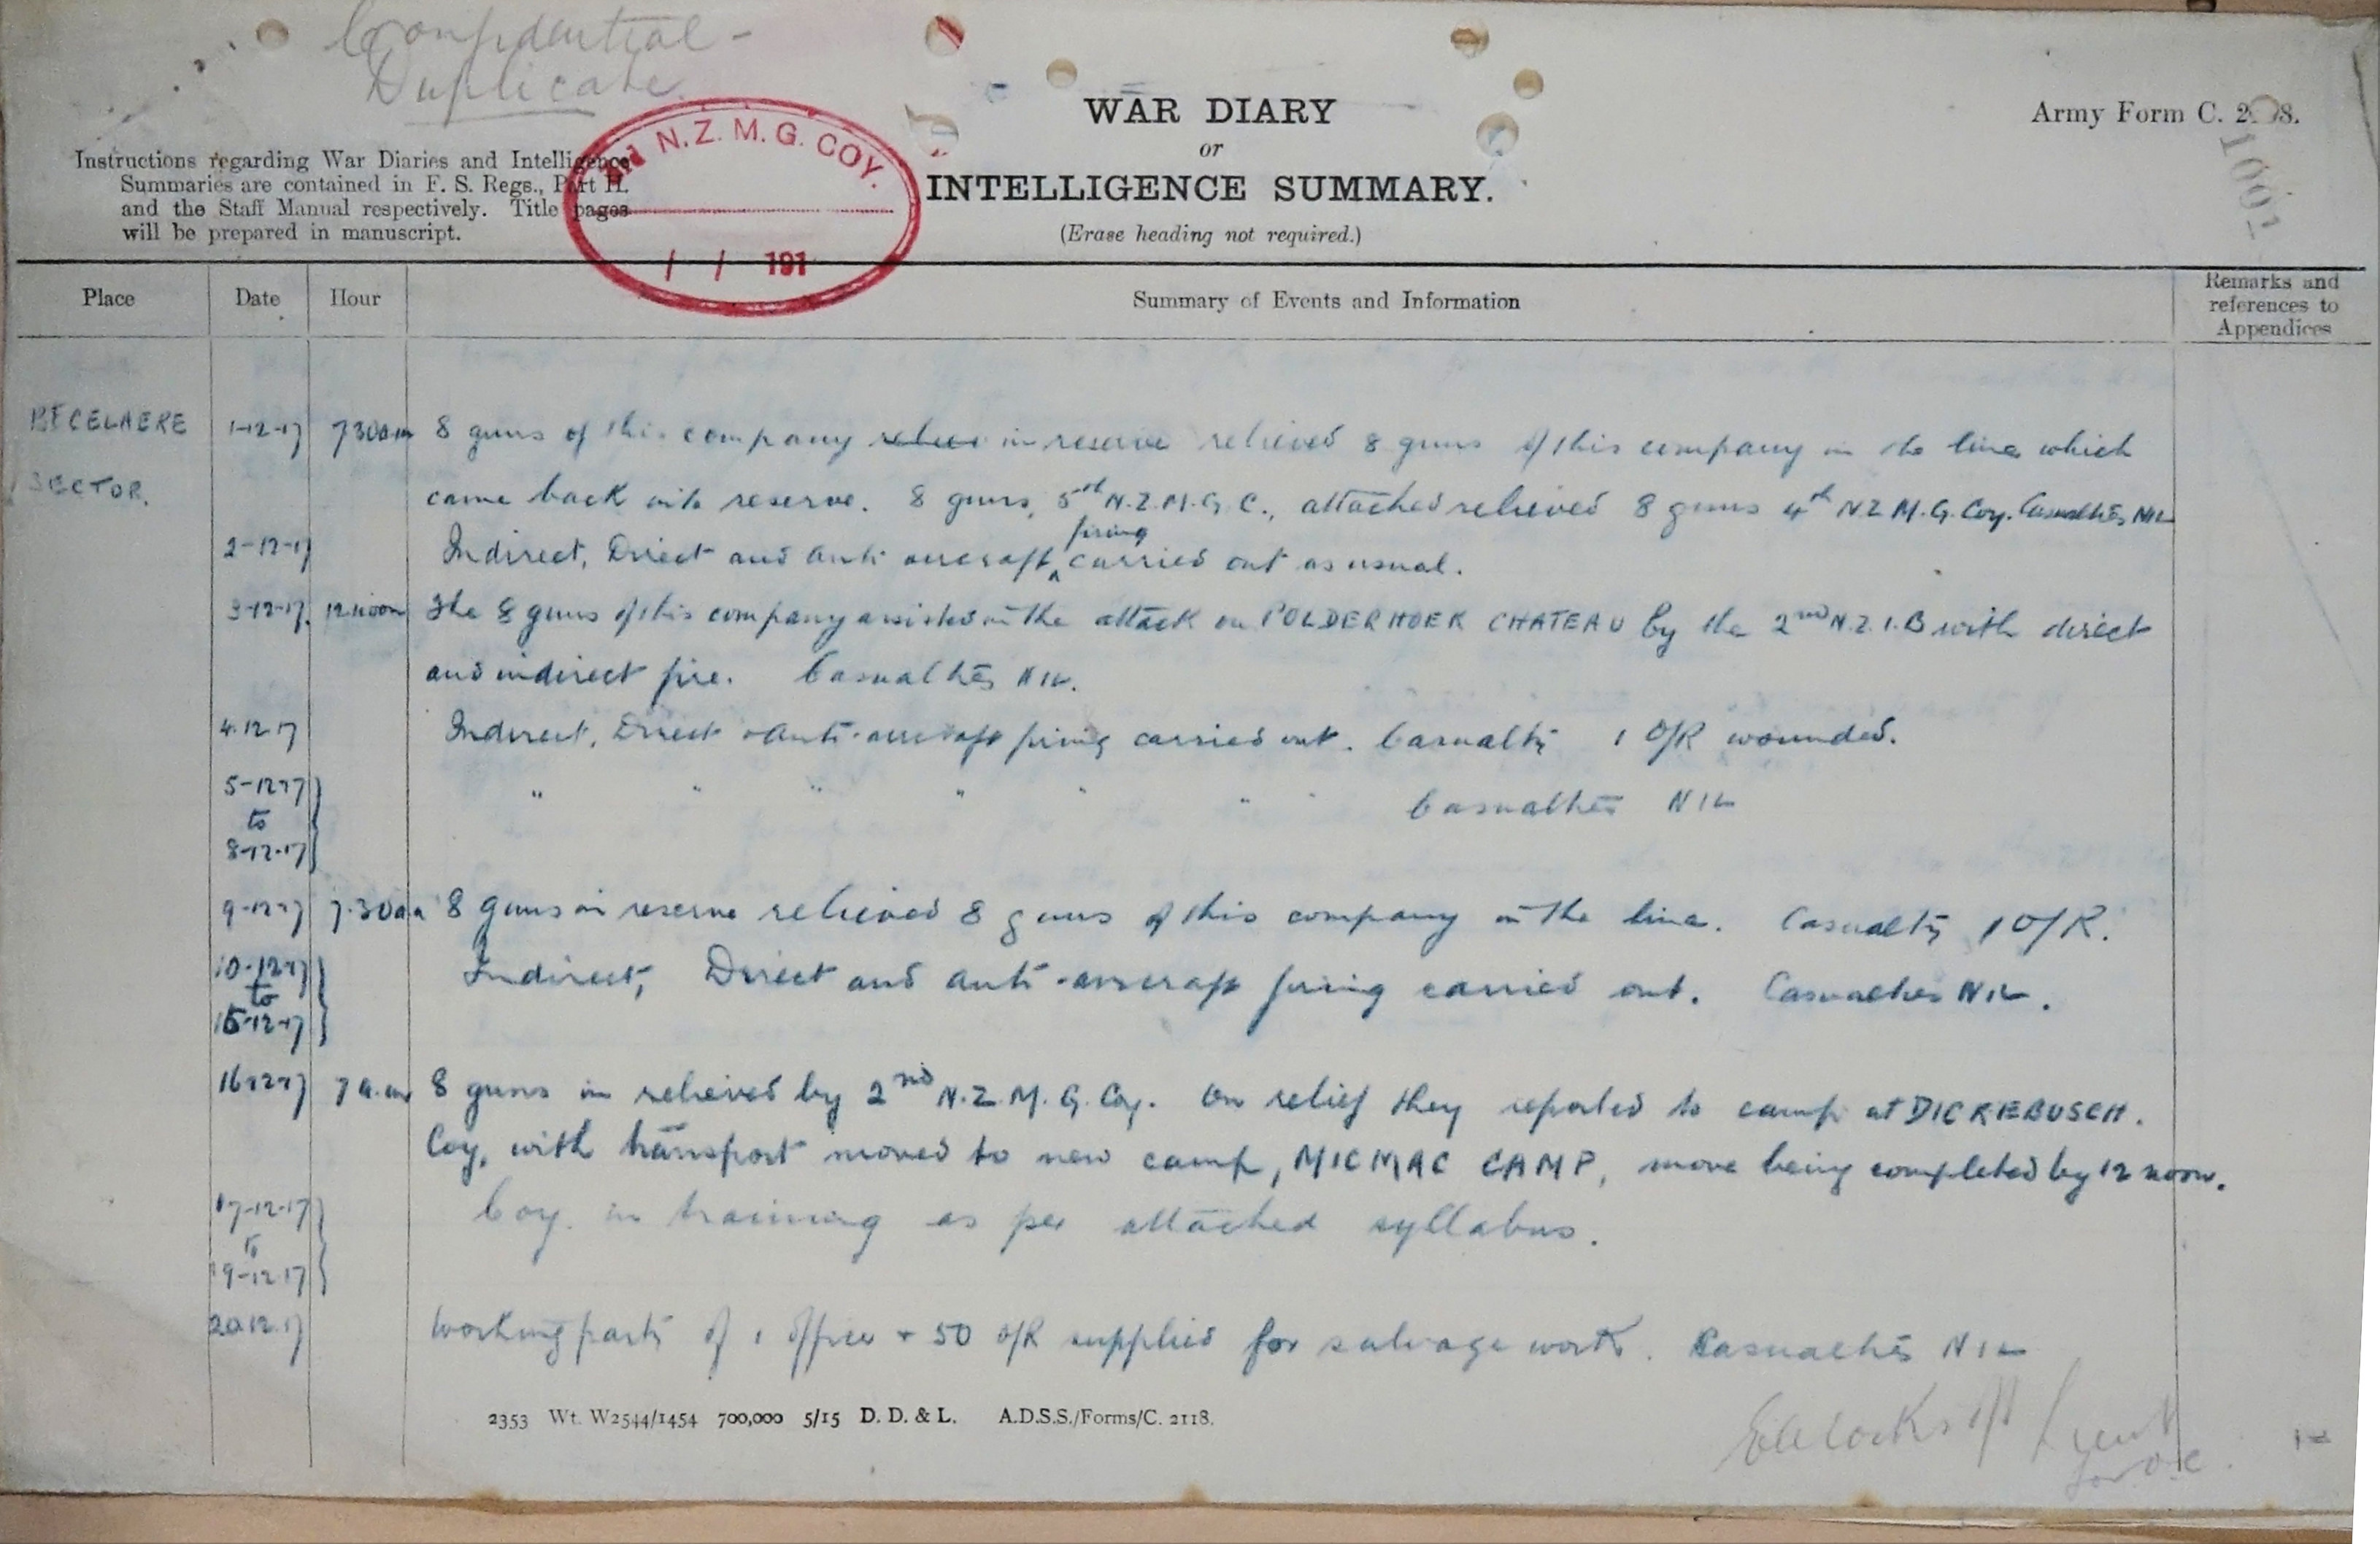 Confidential -
Duplicate.
WAR DIARY
or
INTELLIGENCE SUMMARY.
(Erase heading not required.)
Army Form C.
Instructions regarding War Diaries and Intelligence
Summaries are contained in F. S. Regs., Part II.
and the Staff Manual respectively. Title pages
will be prepared in manuscript.
N. Z. M. G. COY.
/ / 191
Place Date Hour Summary of Events and Information Remarks and
references to
Appendices
BECELAERE 1-12-17 7.30am 8 guns of this company in reserve relieved 8 guns of this company in the line which
SECTOR. came back into reserve. 8 guns, 5th N.Z.M.G.C., attached relieved 8 guns 4th NZ M.G. Coy. Casualties NIL
2-12-17 Indirect, Direct and Anti aircraft firing carried out as usual.
3-12-17. 12 noon The 8 guns of this company assisted in the attack on POLDERHOEK CHATEAU by the 2nd N.Z.I.B with direct
and indirect fire. Casualties NIL.
4.12.17 Indirect, Direct + Anti-aircraft firing carried out. Casualty 1 O/R wounded.
5-12-17 " " " " " " Casualties NIL
to
8-12-17
9-12-17 7.30am 8 guns in reserve relieved 8 guns of this company in the line. Casualty 1 O/R.
10-12-17 Indirect, Direct and anti-aircraft firing carried out. Casualties NIL.
to
15-12-17
16-12-17 7 a.m 8 guns in relieved by 2nd N.Z.M.G. Coy. On relief they reported to camp at DICKEBUSCH.
Coy. with transport moved to new camp, MICMAC CAMP, move being completed by 12 noon.
17-12-17 Coy. in training as per attached syllabus.
to
19-12-17
20.12.17 Working party of 1 officer + 50 O/R supplied for salvage work. Casualties NIL
2353 Wt. W2544/1454 700,000 5/15 D. D. & L. A.D.S.S./Forms/C. 2118.
for O.C.